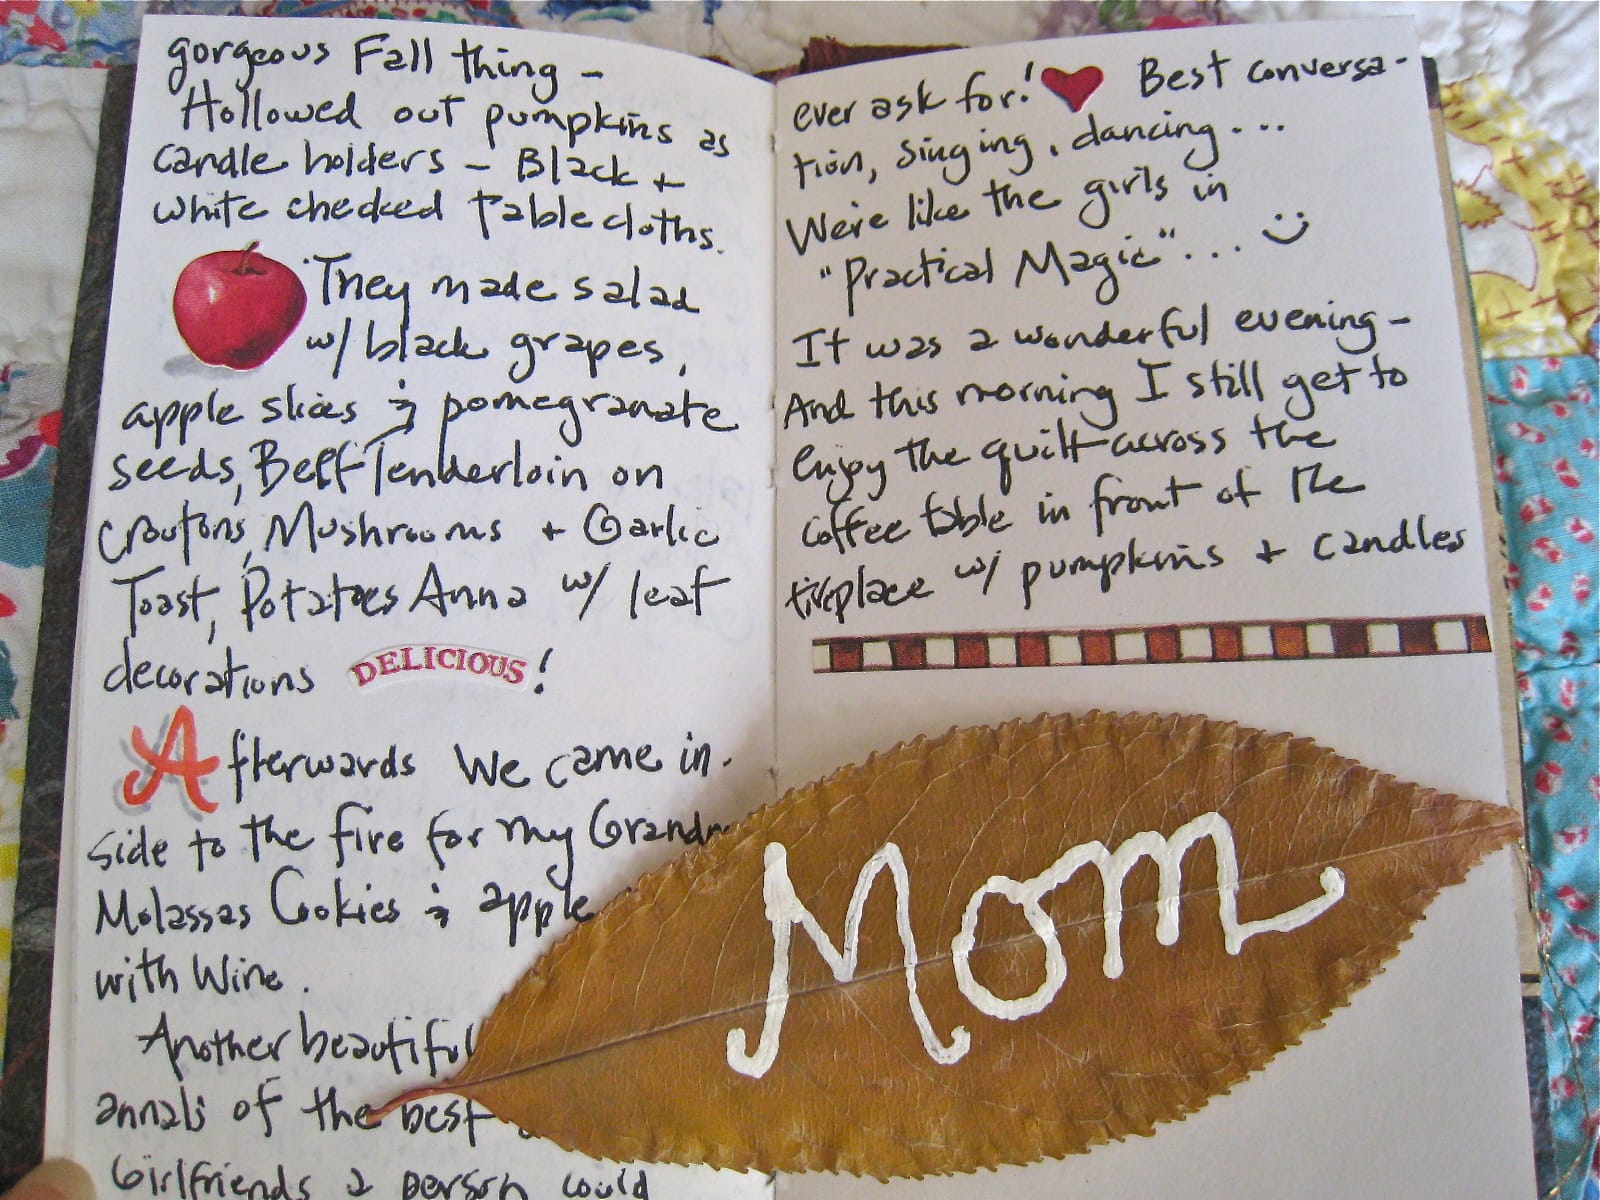 gorgeous Fall thing -
Hollowed out pumpkins as
candle holders - Black +
white checked tablecloths.
They made salad
w/ black grapes,
apple slices & pomegranate
seeds, Beff Tenderloin on
croutons, Mushrooms + Garlic
Toast, Potatoes Anna w/ leaf
decorations DELICIOUS!
Afterwards We came in.
side to the fire for my Grandm
Molassas Cookies & apple
with Wine.
Another beautiful
annals of the best
Girlfriends a person could
ever ask for! Best conversa-
tion, singing, dancing...
We're like the girls in
"Practical Magic"... :)
It was a wonderful evening -
And this morning I still get to
enjoy the quilt across the
coffee table in front of the
fireplace w/ pumpkins + candles
Mom